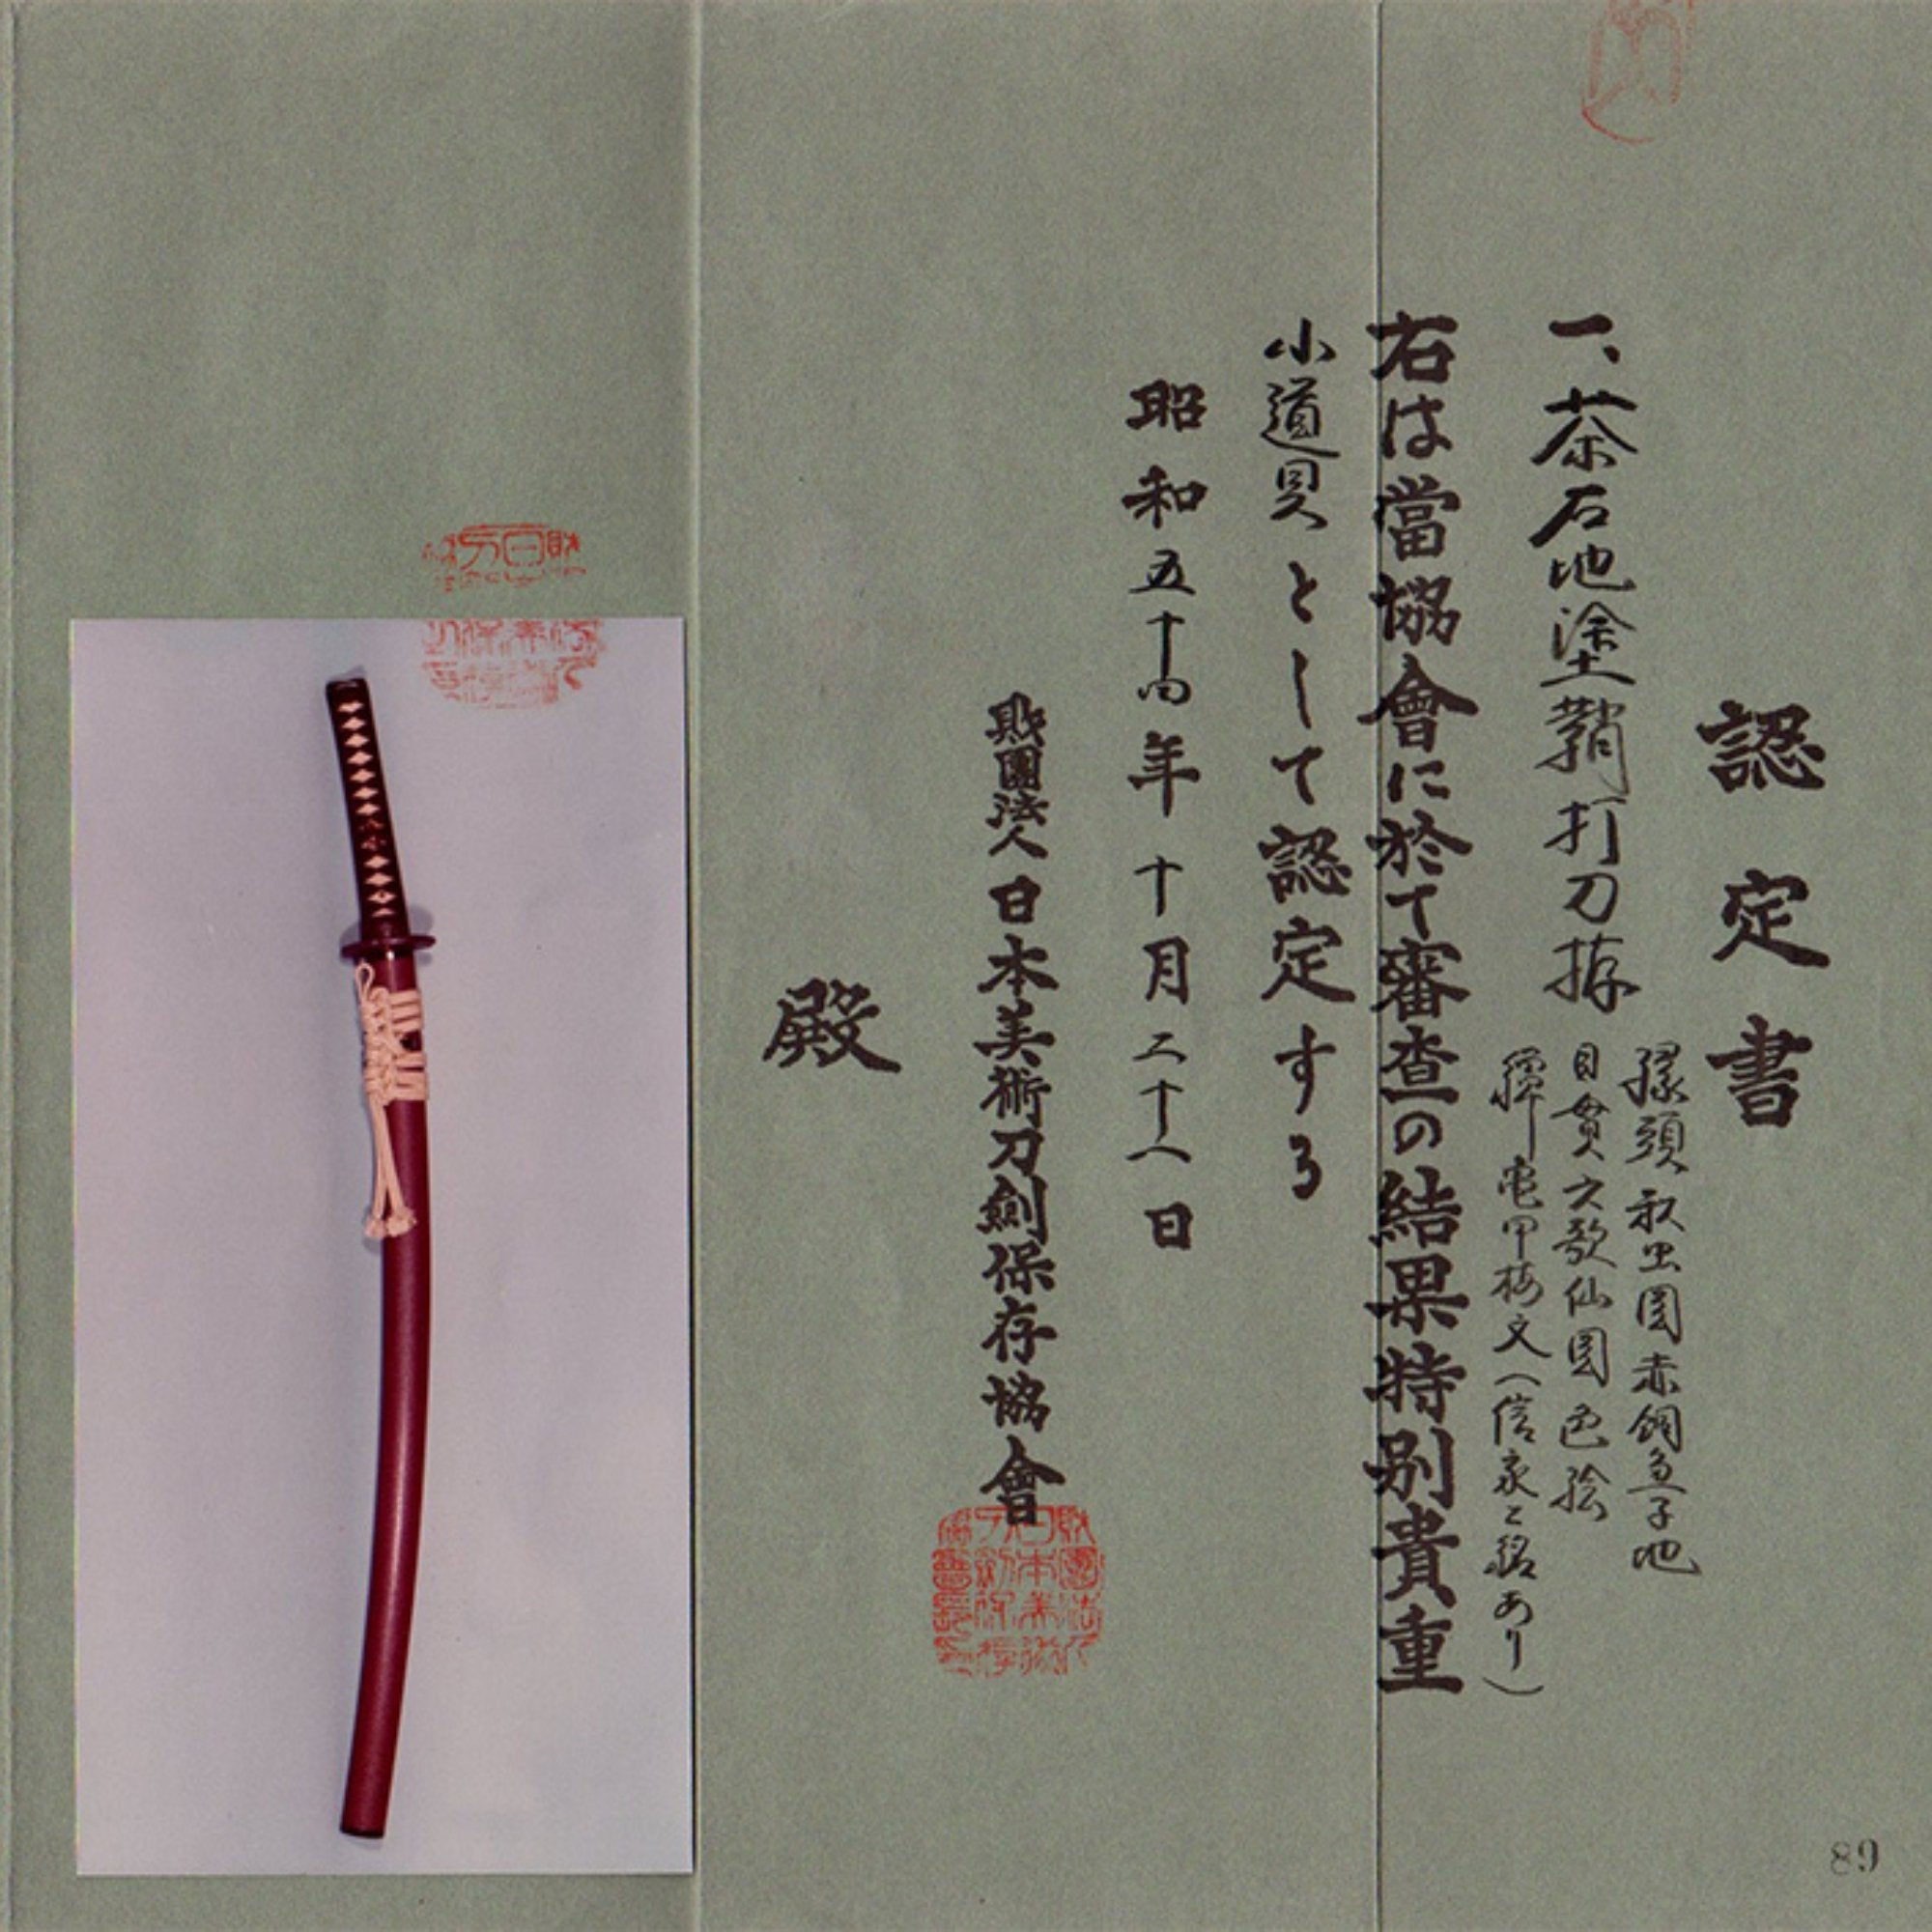 認定書
一、茶石地塗鞘打刀拵
縁頭 秋虫図赤銅魚子地
目貫 六歌仙図色絵
鐔 亀甲梅文(信家ニ銘あり)
右は當協會に於て審査の結果特別貴重
小道具として認定する
昭和五十四年十月二十八日
財團法人日本美術刀劍保存協會
殿
89